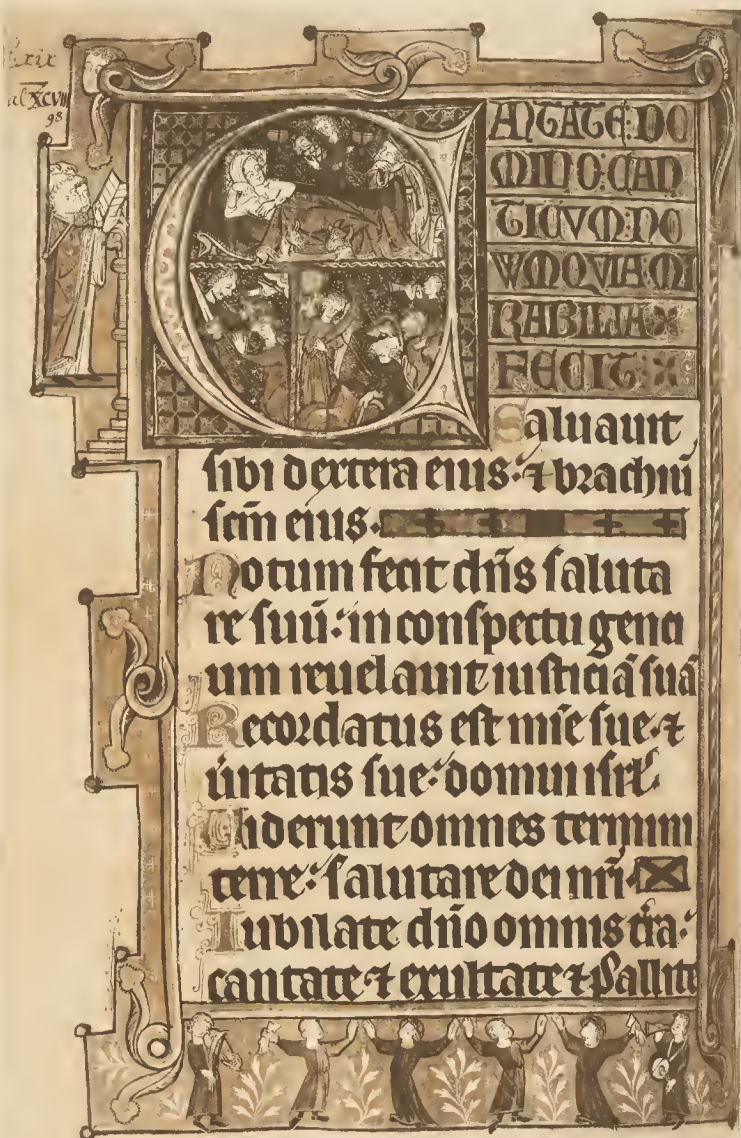 xix
al XCVIII
98
CANTATE:DO
MINO:CAN
TICVM:NO
WM QVIA MI
RABILIA
FECIT:
Saluauit
sibi dextera eius·⁊ brachiū
scm̄ eius·
Notum fecit dn̄s saluta
re suū: in conspectu genci
um reuelauit iusticiā suā
Recordatus est mīe sue·⁊
ūitatis sue: domui isrl̄
Uiderunt omnes termini
terre: salutare dei nr̄i·
Iubilate dn̄o omnis tr̄a:
cantate ⁊ exultate ⁊ psallite